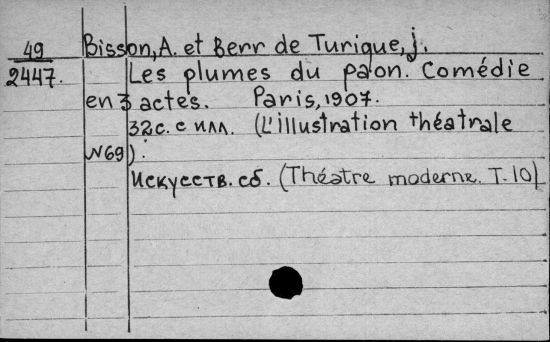 49 Bisson, A. et Berr de Turique, j.
2447. Les plumes du paon. Comédie
en 3 actes. Paris, 1907.
32с. с илл. (L'illustration théatrale
N69).
Искусств. сб. (Théatre moderne. T. 10)